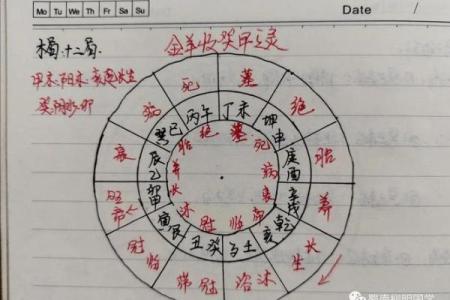 Mo Tu We Th Fr Sa Su
Date /
金羊收癸甲之灵
木局:十二局
甲木:阳木:亥起长生
死
墓
绝
胎
养
长生
沐浴
冠带
旺
衰
病
丙午
丁未
坤申
庚酉
辛戌
乾亥
丑癸
寅艮
乙辰
巽巳
绝
墓
死
病
衰
帝
临
冠
沐
长
养
胎